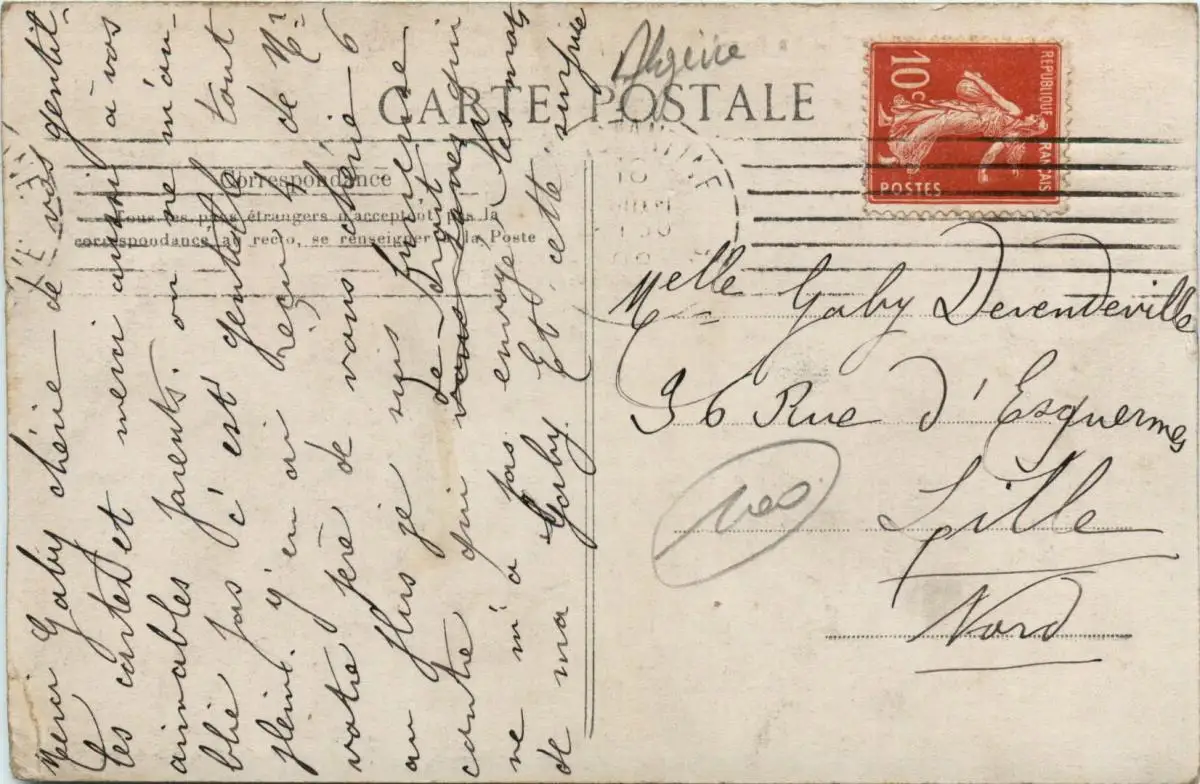 Algérie
CARTE POSTALE
Correspondance
Tous les pays étrangers n'acceptent pas la
correspondance au recto, se renseigner à la Poste
REPUBLIQUE FRANÇAISE
10c
POSTES
Melle Gaby Devendeville
36 Rue d'Esquermes
Lille
Nord
Merci Gaby chérie de vos gentil-
les cartes et merci aussi à vos
aimables parents. on ne m'ou-
blie pas c'est gentil tout
plein. j'en ai reçu 4 de Mr
votre père de vous chérie 6
au plus je suis furieuse
contre qui de-droit qui
ne m'a pas envoyé les mots
de ma Gaby. Et cette surprise